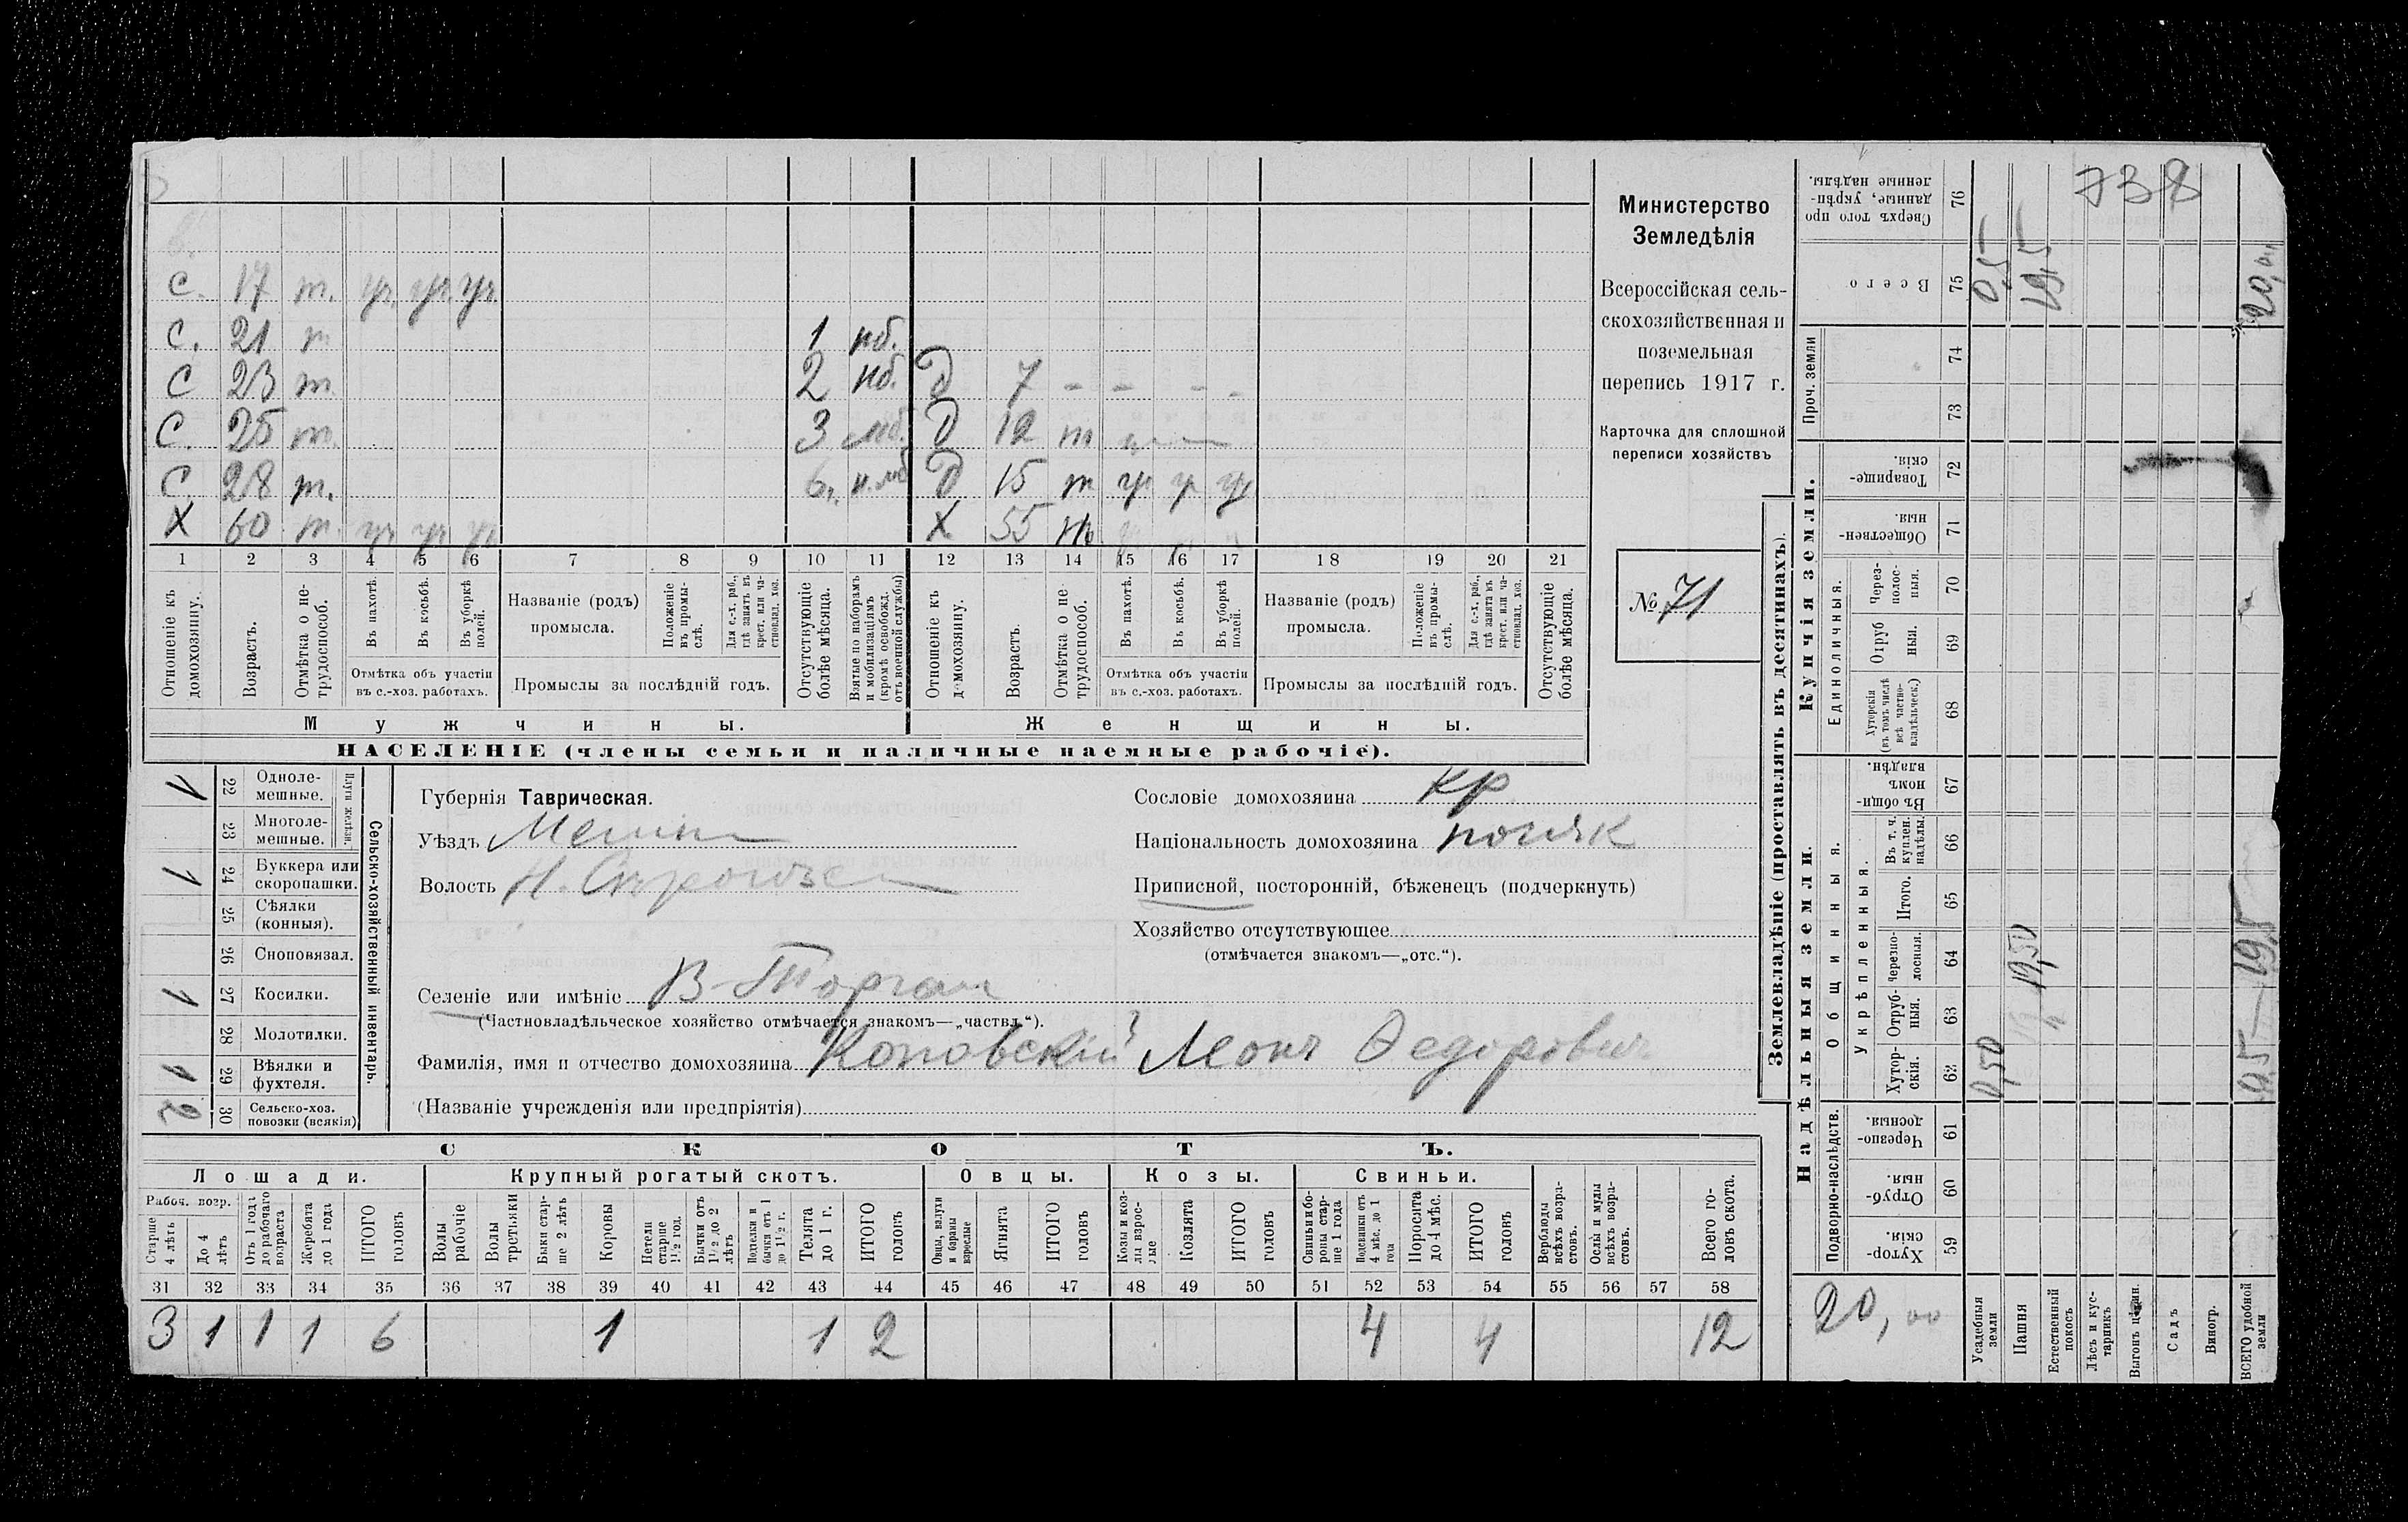 С. 17 т. уч. уч. уч.
С. 21 т 1 мб.
С 23 т. 2 мб. Д 7 - - - -
С. 25 т. 3 мб. Д 12 т
С. 28 т. Д 15 т уч уч уч
Х 60 т. уч уч уч Х 55 т
1 2 3 4 5 6 7 8 9 10 11 12 13 14 15 16 17 18 19 20 21
Отношеніе къ домохозяину.
Возрастъ.
Отмѣтка о нетрудоспособ.
Въ пахотѣ.
Въ косьбѣ.
Въ уборкѣ полей.
Отмѣтка объ участіи въ с.-хоз. работахъ.
Названіе (родъ) промысла.
Положеніе въ промыслѣ.
Для с.-х. раб., гдѣ занятъ въ крест. или частновлад. хоз.
Промыслы за послѣдній годъ.
Отсутствующіе болѣе мѣсяца.
Взятые по наборамъ и мобилизаціямъ (кромѣ освобожд. отъ военной службы)
Отношеніе къ домохозяину.
Возрастъ.
Отмѣтка о нетрудоспособ.
Въ пахотѣ.
Въ косьбѣ.
Въ уборкѣ полей.
Отмѣтка объ участіи въ с.-хоз. работахъ.
Названіе (родъ) промысла.
Положеніе въ промыслѣ.
Для с.-х. раб., гдѣ занята въ крест. или частновлад. хоз.
Промыслы за послѣдній годъ.
Отсутствующіе болѣе мѣсяца.
Мужчины. Женщины.
НАСЕЛЕНІЕ (члены семьи и наличные наемные рабочіе).
Министерство
Земледѣлія
Всероссійская сель-
скохозяйственная и
поземельная
перепись 1917 г.
Карточка для сплошной
переписи хозяйствъ
№ 71
Сельско-хозяйственный инвентарь.
Плуги желѣзн.
1 22 Одноле-мешные.
23 Многоле-мешные.
1 24 Буккера или скоропашки.
25 Сѣялки (конныя).
26 Сноповязал.
1 27 Косилки.
28 Молотилки.
1 29 Вѣялки и фухтеля.
2 30 Сельско-хоз. повозки (всякія)
Губернія Таврическая.
Уѣздъ
Волость
Селеніе или имѣніе В-Торгаи
(Частновладѣльческое хозяйство отмѣчается знакомъ—„частвл.“).
Фамилія, имя и отчество домохозяина Коповскій? Леонъ Федорович
(Названіе учрежденія или предпріятія)
Сословіе домохозяина кр
Національность домохозяина поляк
Приписной, посторонній, бѣженецъ (подчеркнуть)
Хозяйство отсутствующее
(отмѣчается знакомъ—„отс.“).
СКОТЪ.
Лошади. Крупный рогатый скотъ. Овцы. Козы. Свиньи.
Рабоч. возр.
Старше 4 лѣтъ
До 4 лѣтъ
Отъ 1 года до рабочаго возраста
Жеребята до 1 года
ИТОГО головъ
Волы рабочіе
Волы третьяки
Быки старше 2 лѣтъ
Коровы
Нетели старше 1½ год.
Бычки отъ 1½ до 2 лѣтъ
Подтелки и бычки отъ 1 до 1½ г.
Телята до 1 г.
ИТОГО головъ
Овцы, валухи и бараны взрослые
Ягнята
ИТОГО головъ
Козы и козлы взрослые
Козлята
ИТОГО головъ
Свиньи и боровы старше 1 года
Подсвинки отъ 4 мѣс. до 1 года
Поросята до 4 мѣс.
ИТОГО головъ
Верблюды всѣхъ возрастовъ.
Ослы и мулы всѣхъ возрастовъ.
Всего головъ скота.
31 32 33 34 35 36 37 38 39 40 41 42 43 44 45 46 47 48 49 50 51 52 53 54 55 56 57 58
3 1 1 1 6 1 1 2 4 4 12
Землевладѣніе (проставлять въ десятинахъ).
Сверхъ того проданные, укрѣпленные надѣлы. 76
738
Всего 75 0,5 19,5 20,
Проч. земли 74 73
Купчія земли.
Товарищескія. 72
Общественныя. 71
Единоличныя.
Черезполосныя. 70
Отрубныя. 69
Хуторскія (въ томъ числѣ всѣ частновладѣльческ.) 68
Надѣльныя земли.
Общинныя.
Въ общинномъ владѣн. 67
Укрѣпленныя.
Въ т. ч. куплен. надѣлы. 66
Итого. 65
Черезполосныя. 64 19,50
Отрубныя. 63
Хуторскія. 62 0,50
Подворно-наслѣдств.
Черезполосныя. 61
Отрубныя. 60
Хуторскія. 59
20,00
Усадебныя земли
Пашня
Естественный покосъ
Лѣсъ и кустарникъ
Выгонъ цѣлин.
Садъ
Виногр.
ВСЕГО удобной земли